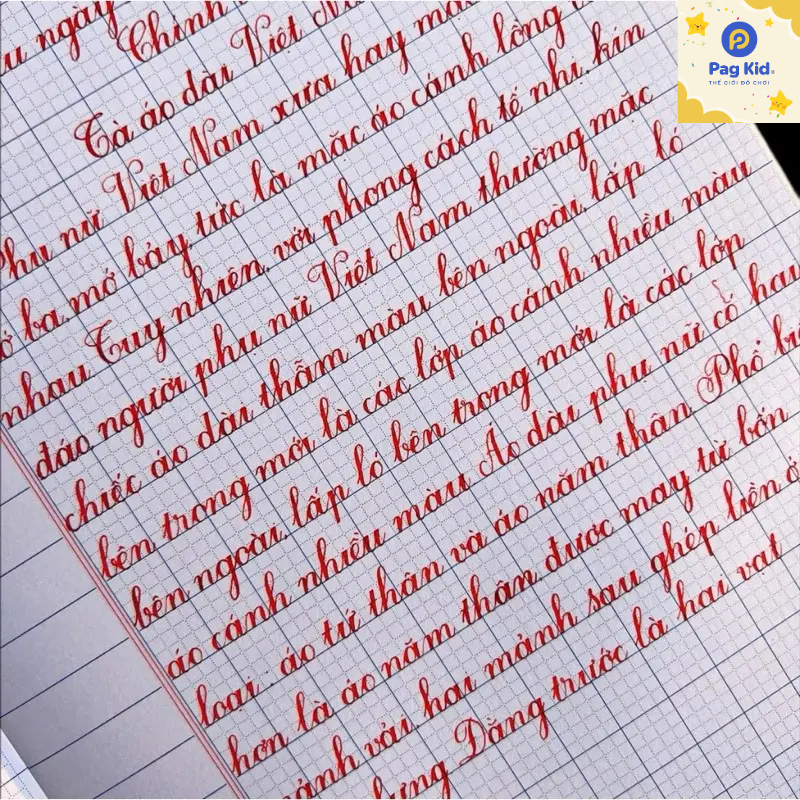 ngày
Chính
Tà áo dài Việt
Phụ nữ Việt Nam xưa hay
ba mớ bảy tức là mặc áo cánh lồng
nhau Tuy nhiên, với phong cách tế nhị, kín
đáo người phụ nữ Việt Nam thường mặc
chiếc áo dài thẫm màu bên ngoài, lấp ló
bên trong mới là các lớp áo cánh nhiều màu
bên ngoài, lấp ló bên trong mới là các lớp
áo cánh nhiều màu Áo dài phụ nữ có hai
loại: áo tứ thân và áo năm thân Phổ
hơn là áo năm thân, được may từ bốn
mảnh vải hai mảnh sau ghép liền ở
lưng Đằng trước là hai vạt
Pag Kid
THẾ GIỚI ĐỒ CHƠI